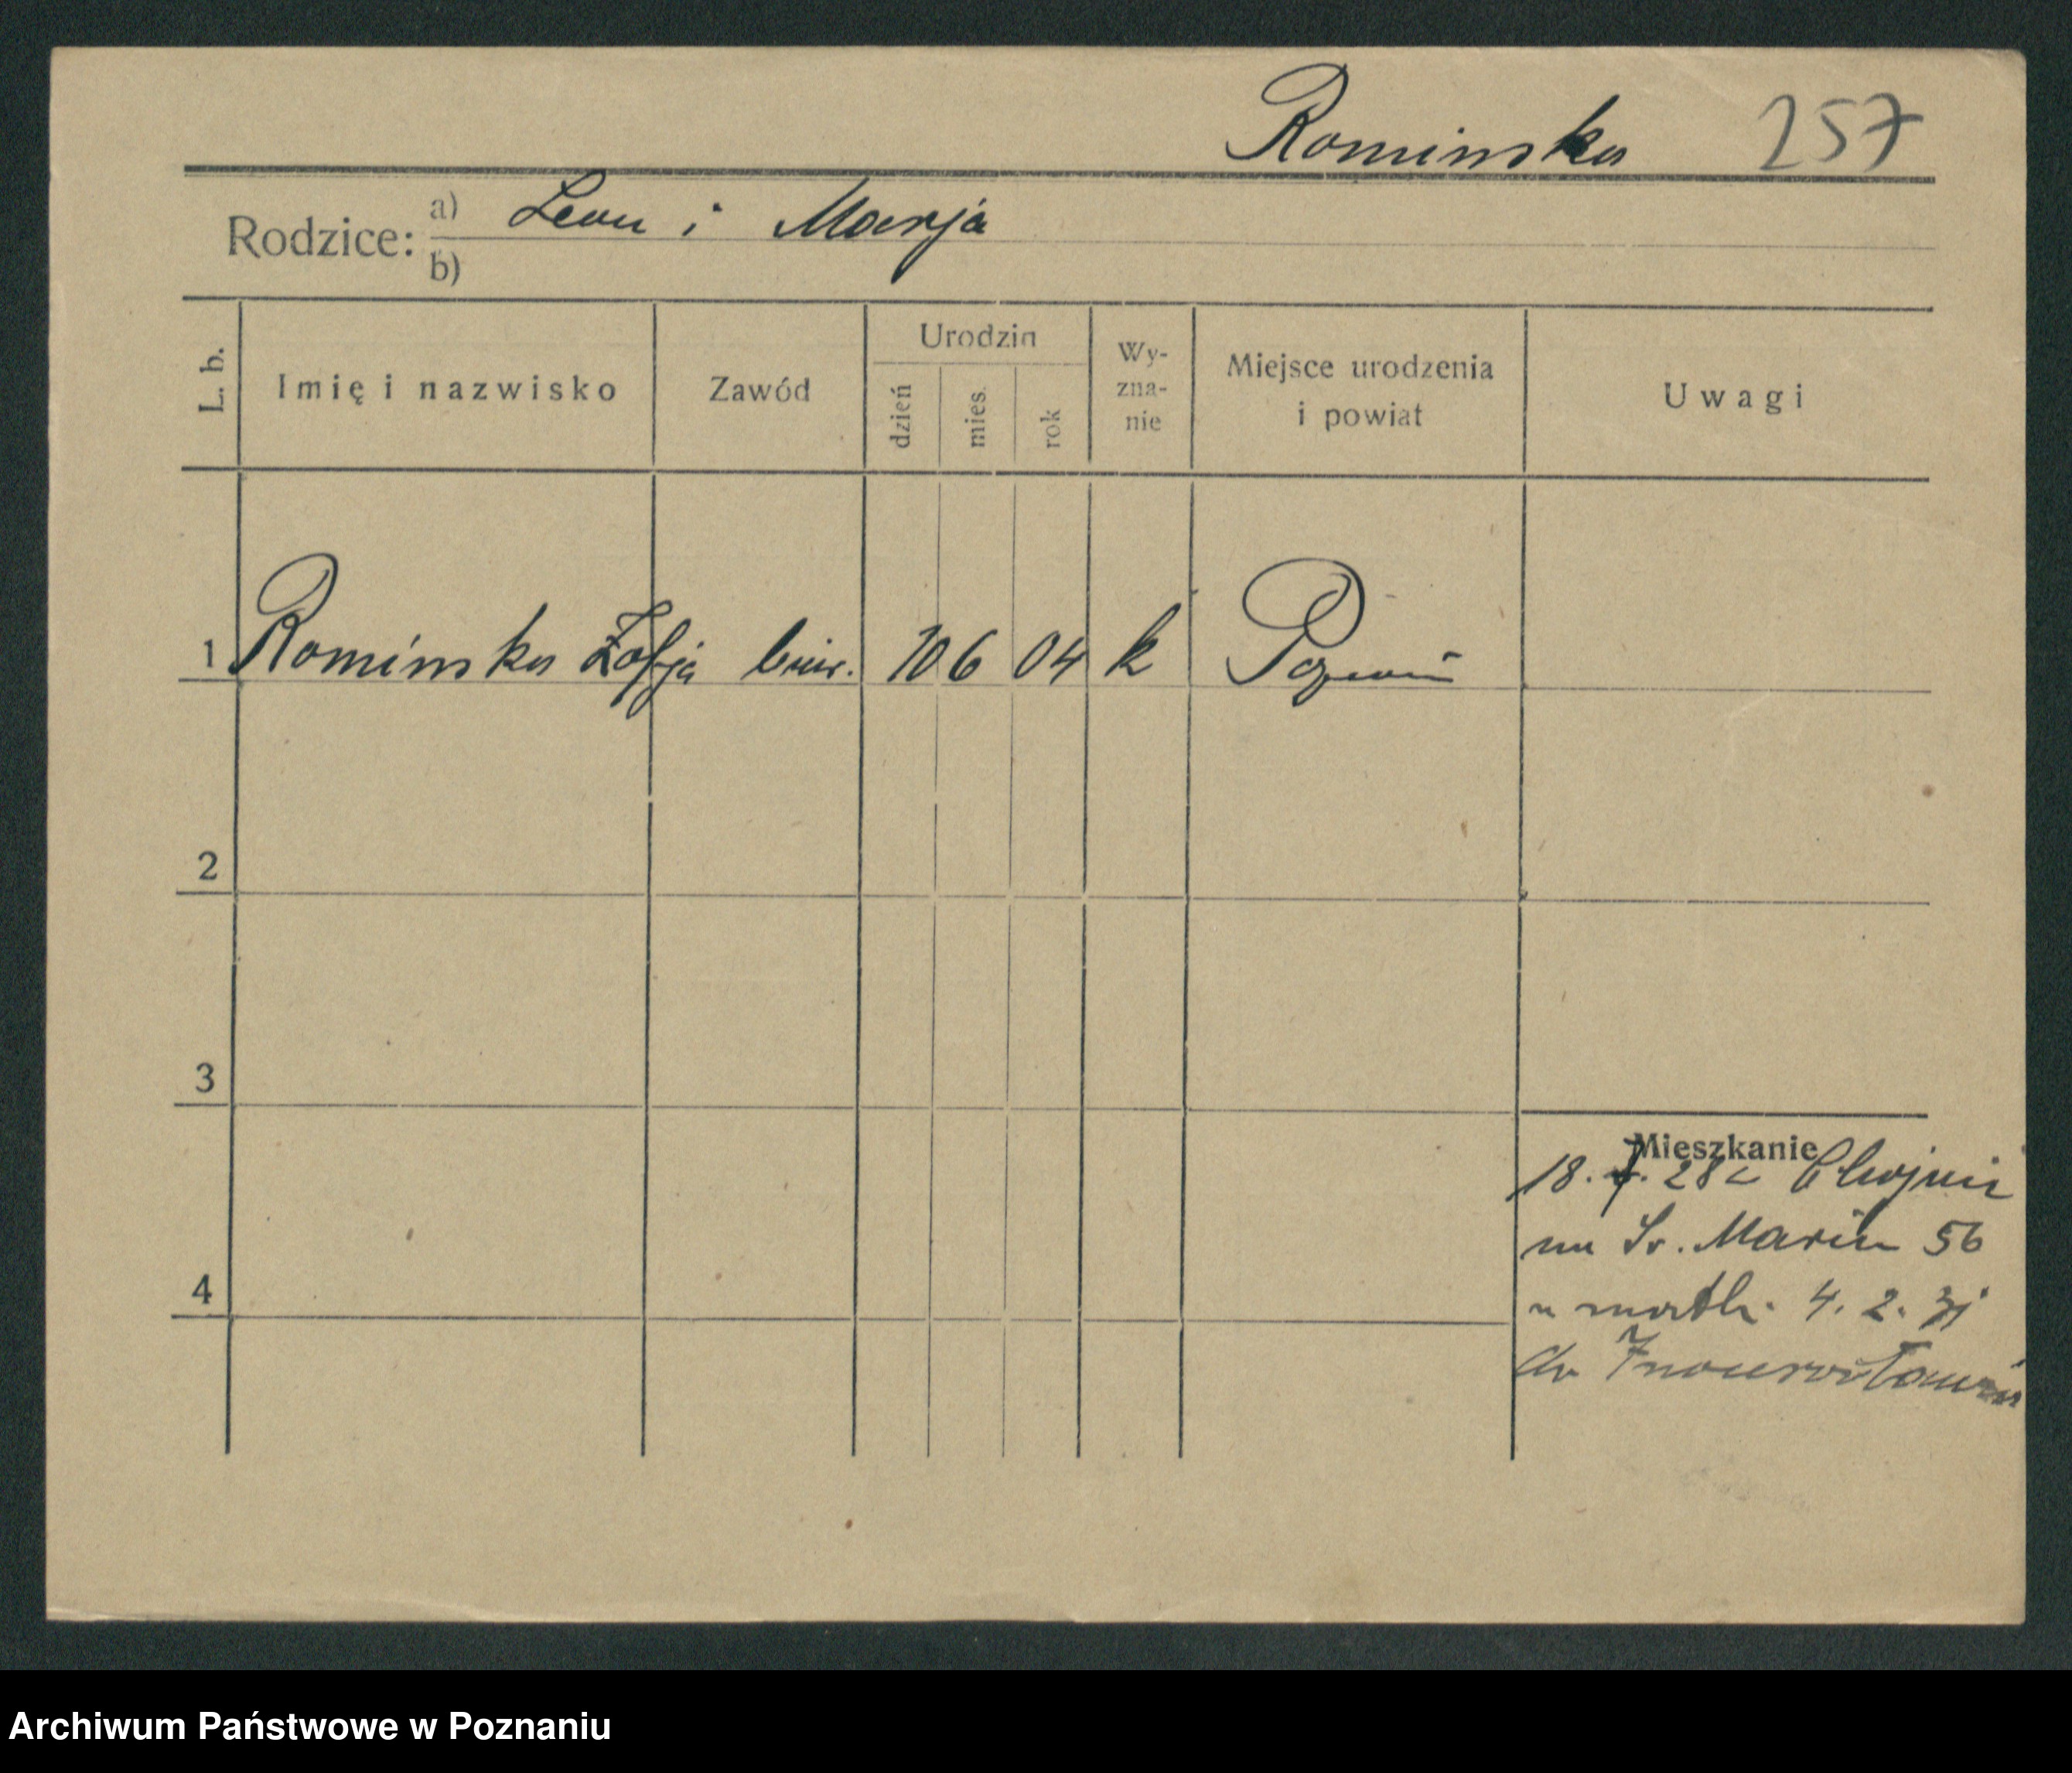 Rominska 257
Rodzice: a) Leon i Marja
b)
L. b. Imię i nazwisko Zawód Urodzin dzień mies. rok Wy-zna-nie Miejsce urodzenia i powiat Uwagi
1 Rominska Zofja biur. 10 6 04 k Poznań
2
3
Mieszkanie
18. 7. 28 z Chojnic
na Św. Marcin 56
4
4. 2. 31
do Inowrocławia
Archiwum Państwowe w Poznaniu